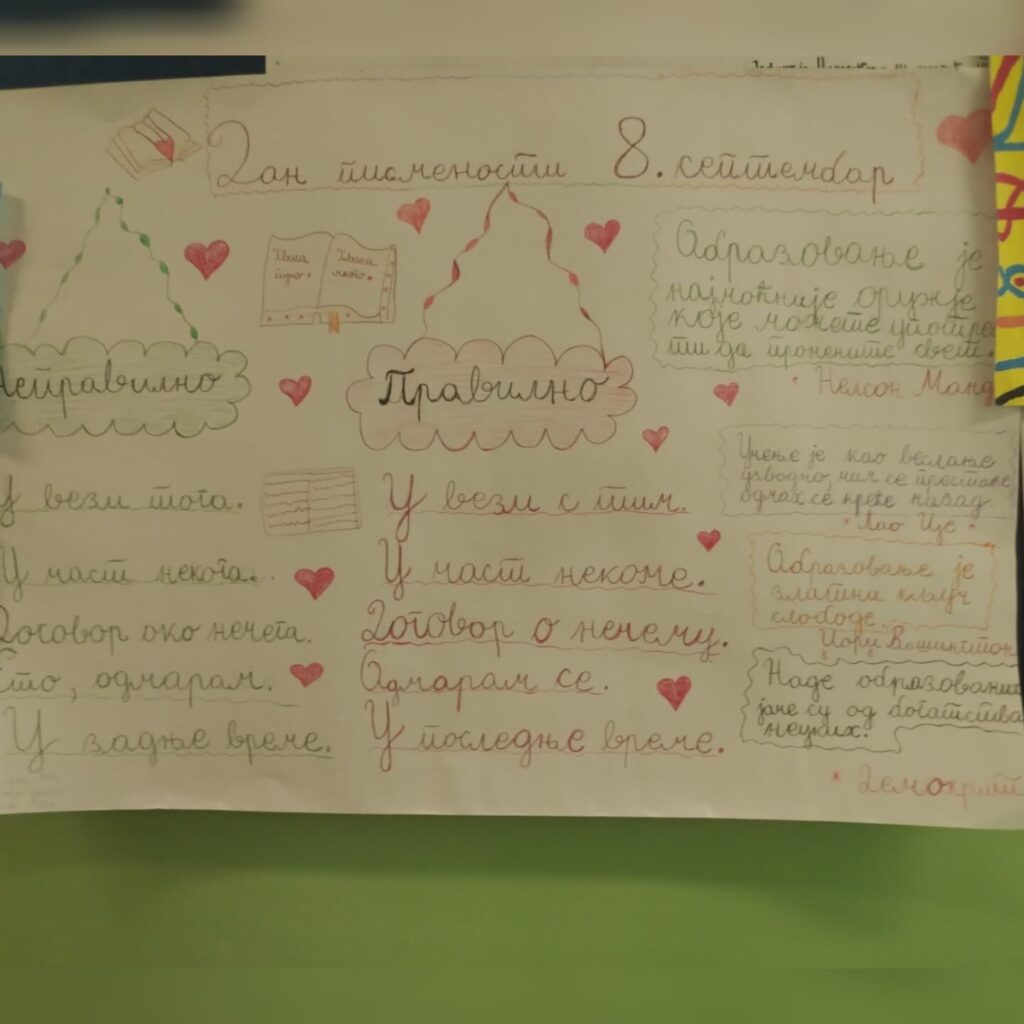 Дан писмености 8. септембар
Хвала
пуно.
Хвала
много.
Неправилно
Правилно
У вези тога.
У вези с тим.
У част некога.
У част некоме.
Договор око нечега.
Договор о нечему.
Ето, одмарам.
Одмарам се.
У задње време.
У последње време.
Образовање је
најмоћније оружје
које можете употре
ти да промените свет.
Нелсон Манд
Учење је као веслање
узводно, чим се престане
одмах се креће назад
Лао Це
Образовање је
златни кључ
слободе.
Џорџ Вашингтон
Наде образованих
јаче су од богатства
неуких.
Демокрит